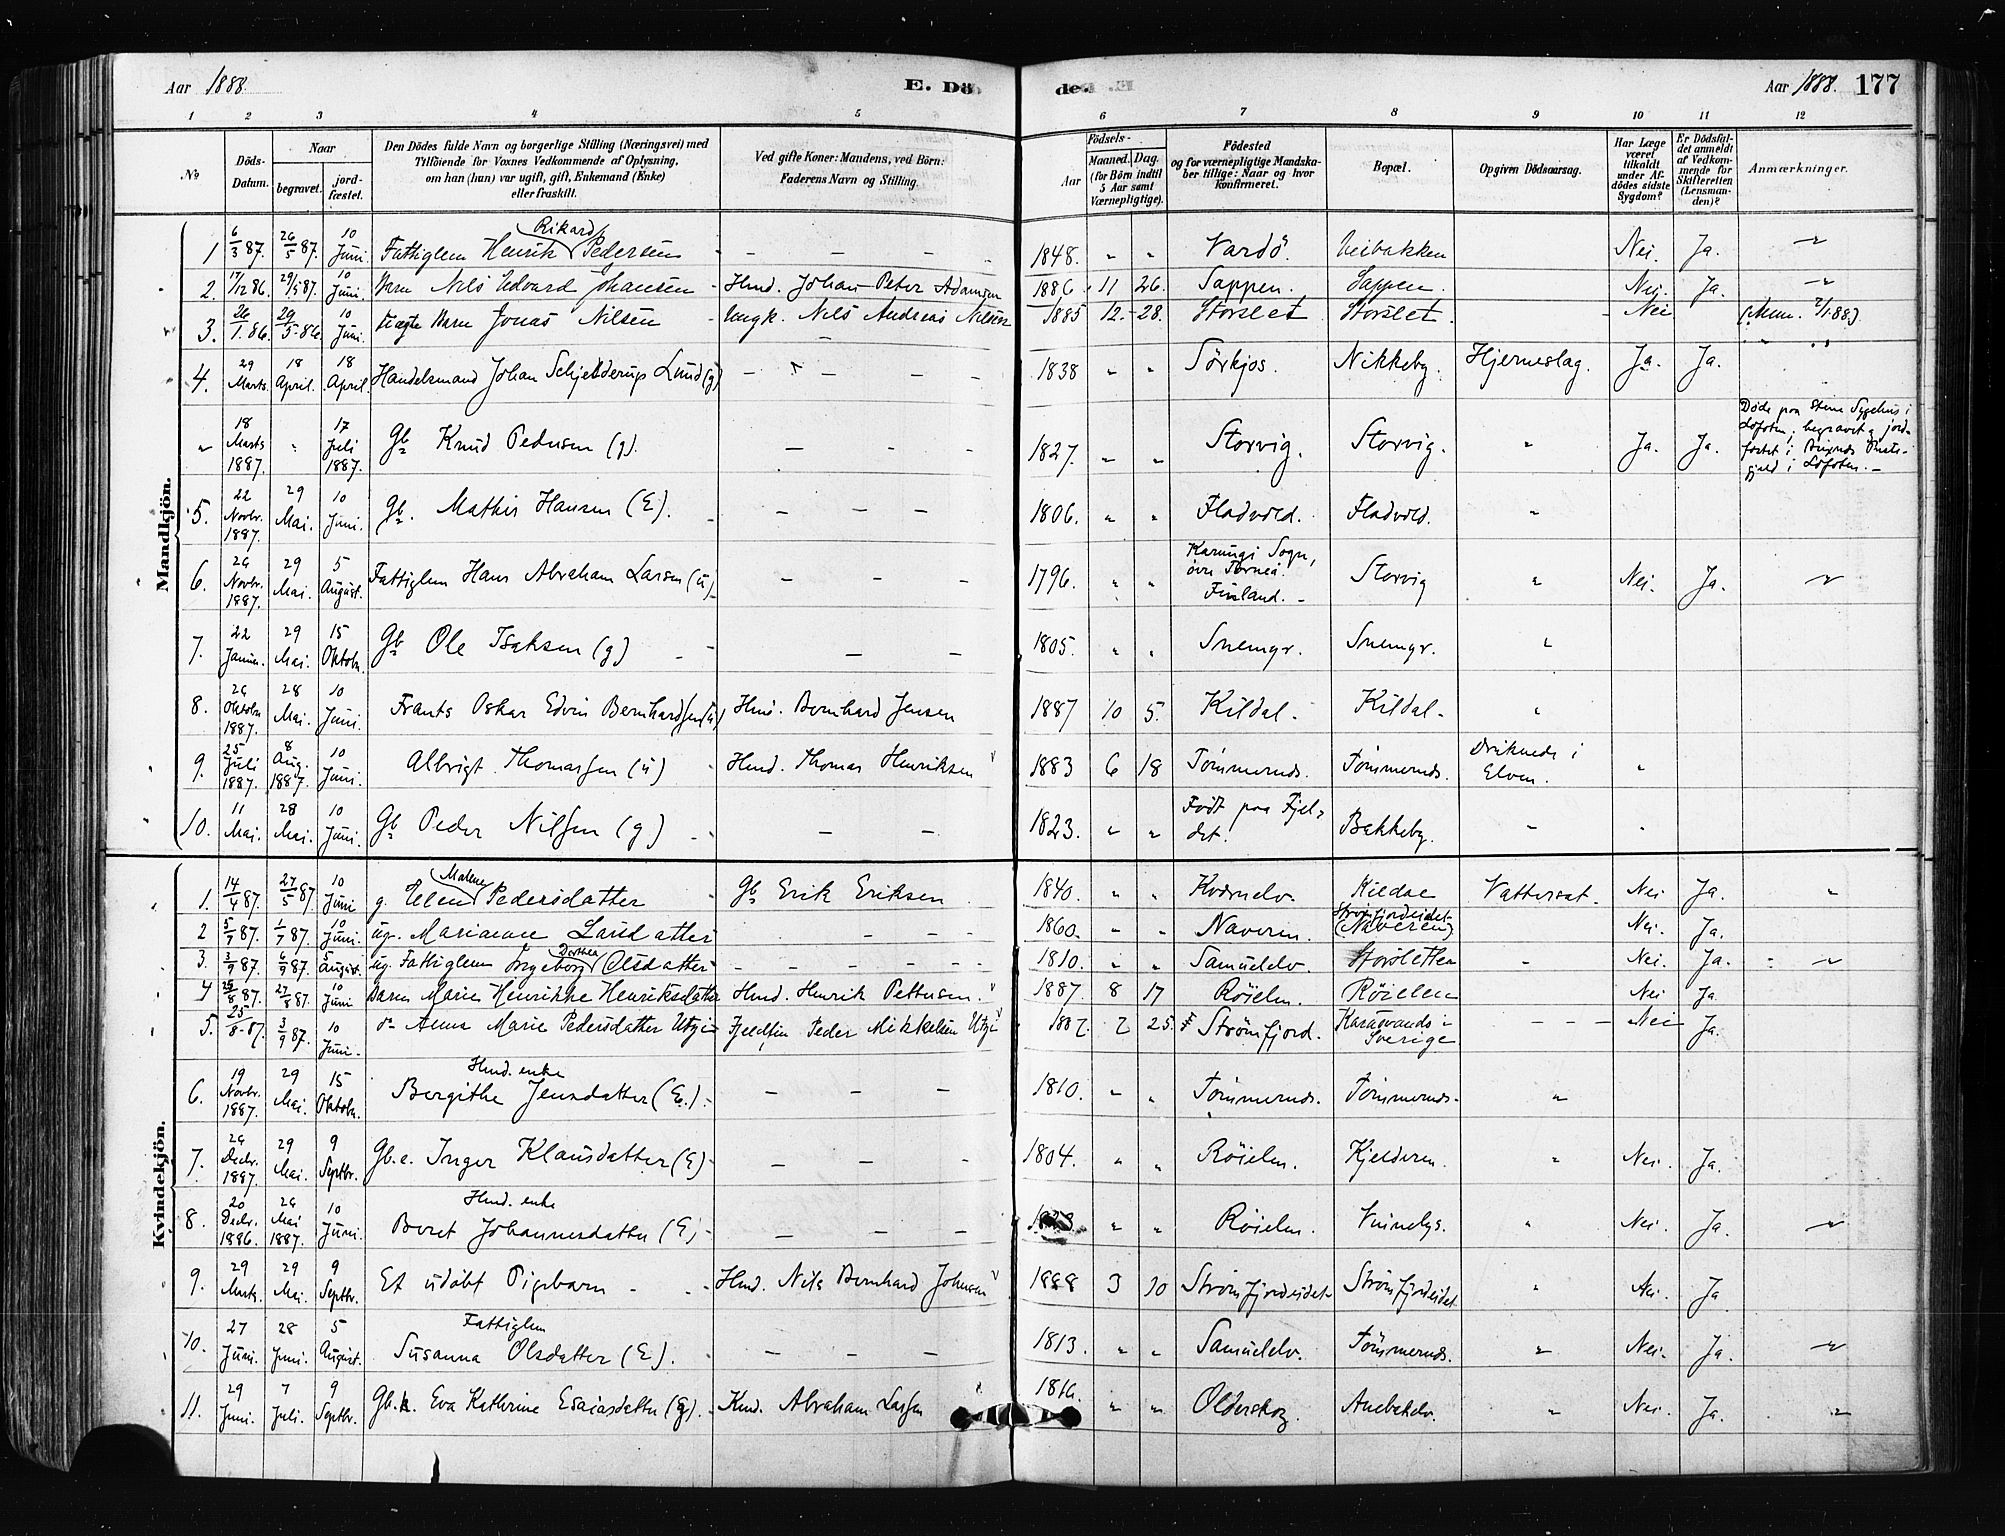 Aar 1888.
E. Dö
de.
Aar 1888. 177
1 2 3 4 5 6 7 8 9 10 11 12
No
Döds-Datum.
Naar
begravet.
jord-fæstet.
Den Dödes fulde Navn og borgerlige Stilling (Næringsvei) med
Tilföiende for Voxnes Vedkommende af Oplysning,
om han (hun) var ugift, gift, Enkemand (Enke)
eller fraskilt.
Ved gifte Koner: Mandens, ved Börn:
Faderens Navn og Stilling.
Födsels-
Aar
Maaned. Dag.
(for Börn indtil
5 Aar samt
Værnepligtige).
Födested
og for værnepligtige Mandska-
ber tillige: Naar og hvor
Konfirmeret.
Bopæl.
Opgiven Dödsaarsag.
Har Læge
været
tilkaldt
under Af-
dödes sidste
Sygdom?
Er Dödsfal-
det anmeldt
af Vedkom-
mende for
Skifteretten
(Lensman-
den)?
Anmærkninger.
Mandkjön.
1 6/3 87. 26/5 87. 10 Juni. Fattiglem Henrik Rikard Pedersen - - - - 1848. " " Vardö Veibakken Nei. Ja. "
2. 17/12 86. 29/5 87. 10 Juni. Barn Nils Edvard Johansen Hmd. Johan Peter Adamsen 1886 11 26. Sappen. Sappen. Nei. Ja. "
3. 26/1. 86. 29/5 86. 10 Juni. Barn Jonas Nilsen Ungk. Nils Andreas Nilsen 1885 12. 28. Storslet Storslet. Nei
4. 29 Marts. 18 April. 18 April. Handelsmand Johan Schjelderup Lund (g) - - - - 1838 " " Sörkjos. Nikkeby. Hjerneslag. Ja. Ja.
" 18 Marts 1887. " 17 Juli 1887. Gb Knud Pedersen (g). - - - 1827. " " Storvig. Storvig. " Ja. Ja. Döde paa Stene Sygehus i
Lofoten, begravet & jord-
fæstet i Buxnes Præste-
gjeld i Lofoten. -
5. 22 Novbr. 1887. 29 Mai. 10 Juni. Gb. Mathis Hansen (E). - - - 1806. " " Fladvold. Fladvold. "
6. 26 Novbr. 1887. 29 Mai. 5 August. Fattiglem Hans Abraham Larsen (ú) - - - 1796. " " Karungi Sogn,
övre Torneå.
Finland. - Storvig " Nei. Ja. "
7. 22 Januar. 29 Mai. 15 Oktobr. Gb Ole Isaksen (g) - - 1805. " " Snemyr. Snemyr. "
8. 26 Oktobr 1887. 28 Mai. 10 Juni. Frants Oskar Edvin Bernhardsen (ú) Hmd. Bernhard Jensen 1887 10 5. Kildal. Kildal. "
9. 25 Juli 1887. 8 Aug. 1887. 10 Juni. Albrigt Thomassen (ú) Hmd. Thomas Henriksen 1883 6 18 Tömmernds. Tömmernds. Druknede i
Elven. "
10. 11 Mai. 28 Mai. 10 Juni. Gb Peder Nilsen (g) - - 1823. " " Födt paa Fjel-
det. Bakkeby. " "
Kvindekjön.
1. 14/4 87. 27/5 87. 10 Juni g. Elen Malene Pedersdatter Gb Erik Eriksen 1840. " " Kvænelv. Kildal Vattersot. Nei Ja. "
2 5/7 87. 1/7 87. 10 Juni. ug. Marianne Larsdatter - - - 1860. " " Naveren. Strömfjordeidet
(Naveren) Nei. Ja.
3. 3/9 87. 6/9 87. 5 August. ug. Fattiglem Ingeborg Dorthea Olsdatter - - - - - 1810. " " Samuelelv. Storsletten - Nei. Ja. "
4 25/8 87. 27/8 87. 10 Juni Barn Marie Henrikke Henriksdatter Hmd. Henrik Pettersen. 1887. 8 17 Röielen. Röielen Nei Ja
5. 25/8 87. 3/9 87. 10 Juni. do Anna Marie Pedersdatter Utzi Fjeldfin Peder Mikkelsen Utzi 1887. 7 25. Strömfjord. Karasvands i
Sverige - - - Nei Ja.
6. 19 Novbr. 1887. 29 Mai. 15 Oktobr. Hmd. enke
Bergithe Jensdatter (E.). - - 1810. " " Tömmernds. Tömmernds. "
7. 26 Decbr. 1887. 29 Mai. 9 Septbr. Gb.e. Inger Klausdatter (E) - - - 1804. " " Röielen. Kjelderen. " Nei. Ja.
8. 20 Decbr. 1886. 26 Mai 1887. 10 Juni. Hmd. enke
Beret Johannesdatter (E) - - - - " " Röielen. Vinnelys. " Nei. Ja. "
9. 29 Marts. 29 Mai. 9 Septbr. Et udöbt Pigebarn - - Hmd. Nils Bernhard Johnsen 1888 3 10 Strömfjordeidet Strömfjordeidet " Nei. Ja
10. 27 Juni. 28 Juni. 5 August. Fattiglem
Susanna Olsdatter (E). - - - 1813. " " Samuelelv. Tömmernds. " Nei. Ja. "
11. 29 Juni. 7 Juli. 9 Septbr. Gb.k. Eva Kathrine Esaiasdatter (g). Kmd. Abraham Larsen 1816. " " Olderskog. " Nei. Ja. "